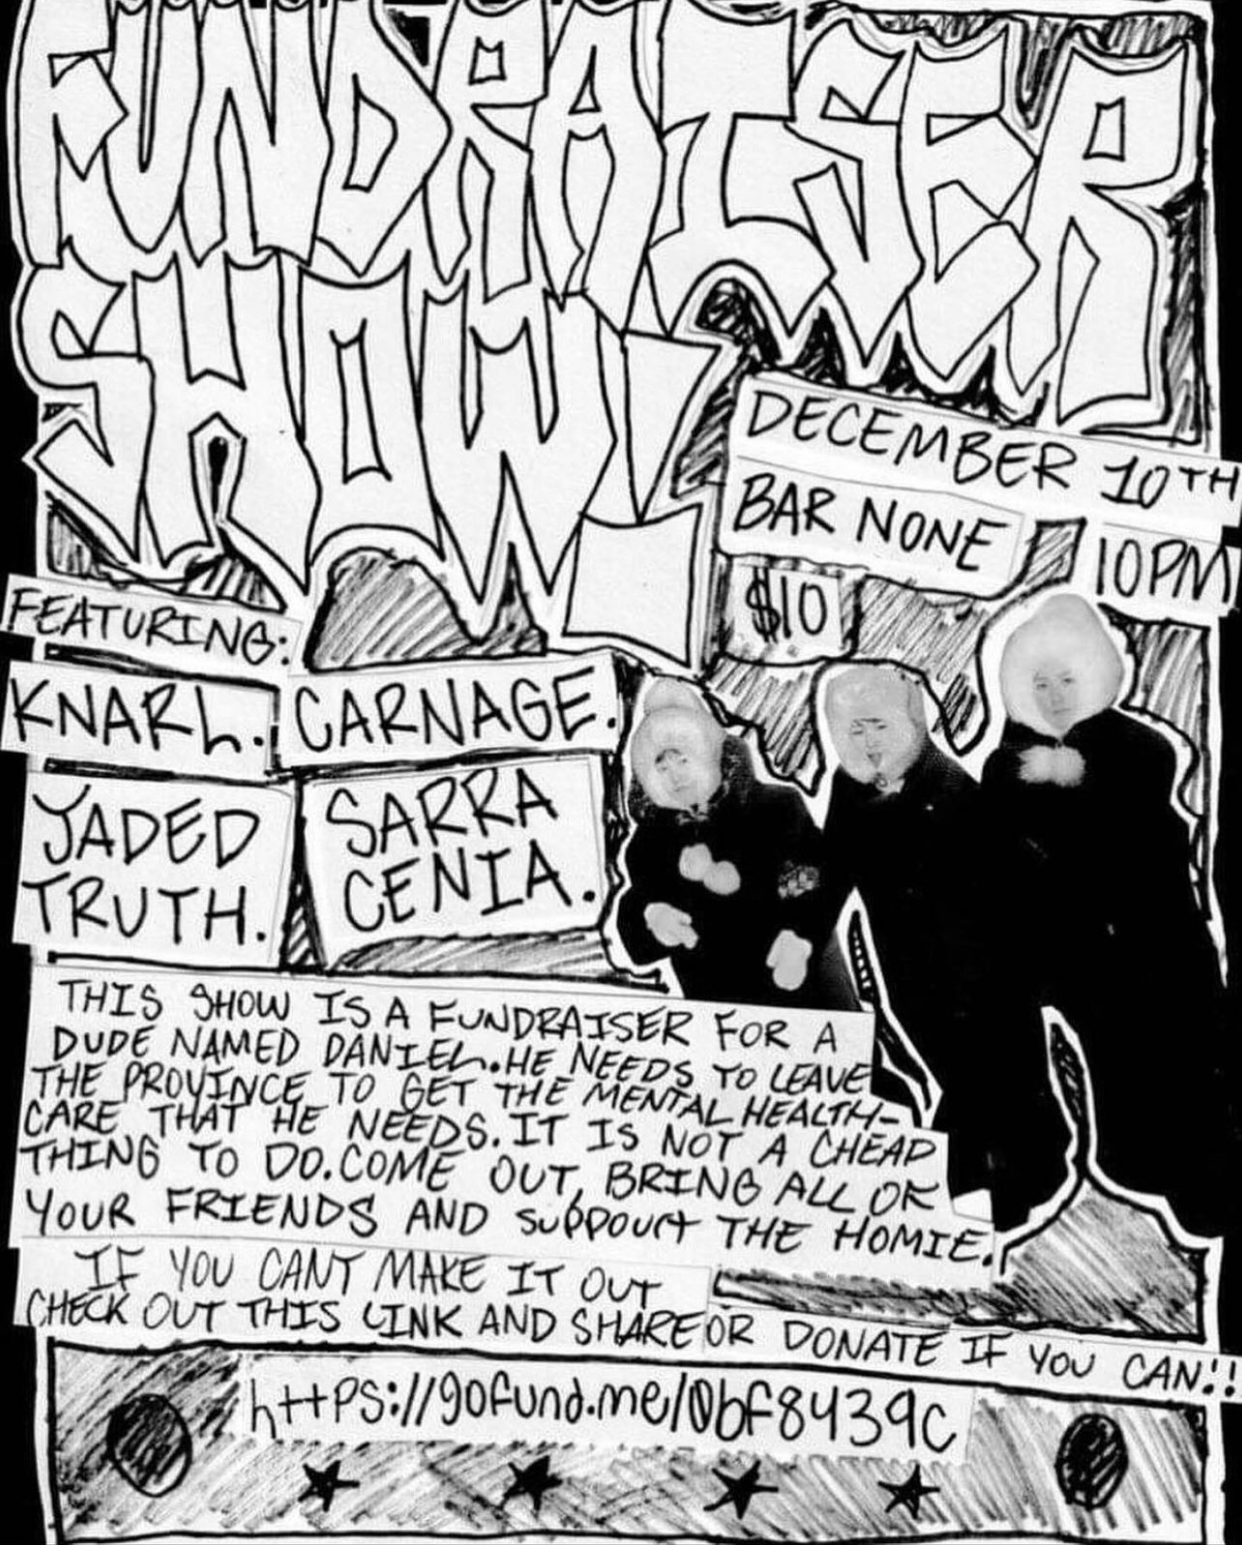 FUNDRAISER
SHOW!
DECEMBER 10TH
BAR NONE
10PM
$10
FEATURING:
KNARL.
CARNAGE.
JADED
TRUTH.
SARRA
CENIA.
THIS SHOW IS A FUNDRAISER FOR A
DUDE NAMED DANIEL. HE NEEDS TO LEAVE
THE PROVINCE TO GET THE MENTAL HEALTH-
CARE THAT HE NEEDS. IT IS NOT A CHEAP
THING TO DO. COME OUT, BRING ALL OF
YOUR FRIENDS AND SUPPOURT THE HOMIE.
IF YOU CANT MAKE IT OUT
CHECK OUT THIS LINK AND SHARE OR DONATE IF YOU CAN!!
https://gofund.me/0bf8439c